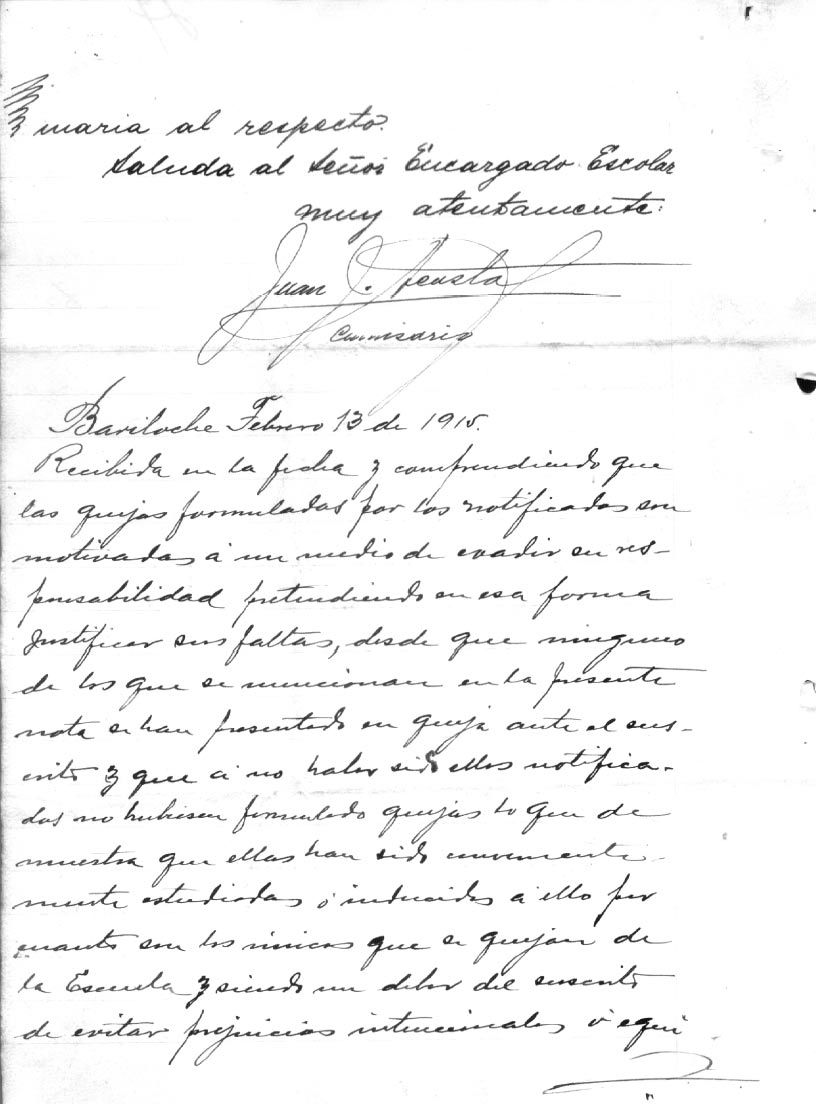 maria al respecto.
Saluda al Señor Encargado Escolar
muy atentamente:
Juan J. Acosta
Comisario
Bariloche Febrero 13 de 1915.
Recibida en la fecha y comprendiendo que
las quejas formuladas por los notificados son
motivadas á un medio de evadir su res-
ponsabilidad pretendiendo en esa forma
justificar sus faltas, desde que ninguno
de los que se mencionan en la presente
nota se han presentado en queja ante el sus-
crito y que á no haber sido ellos notifica-
dos no hubiesen formulado quejas lo que de
muestra que ellas han sido conveniente-
mente estudiadas ó inducidos á ello por
cuanto son los únicos que se quejan de
la Escuela y siendo un deber del suscrito
de evitar prejuicios intencionales ó equi